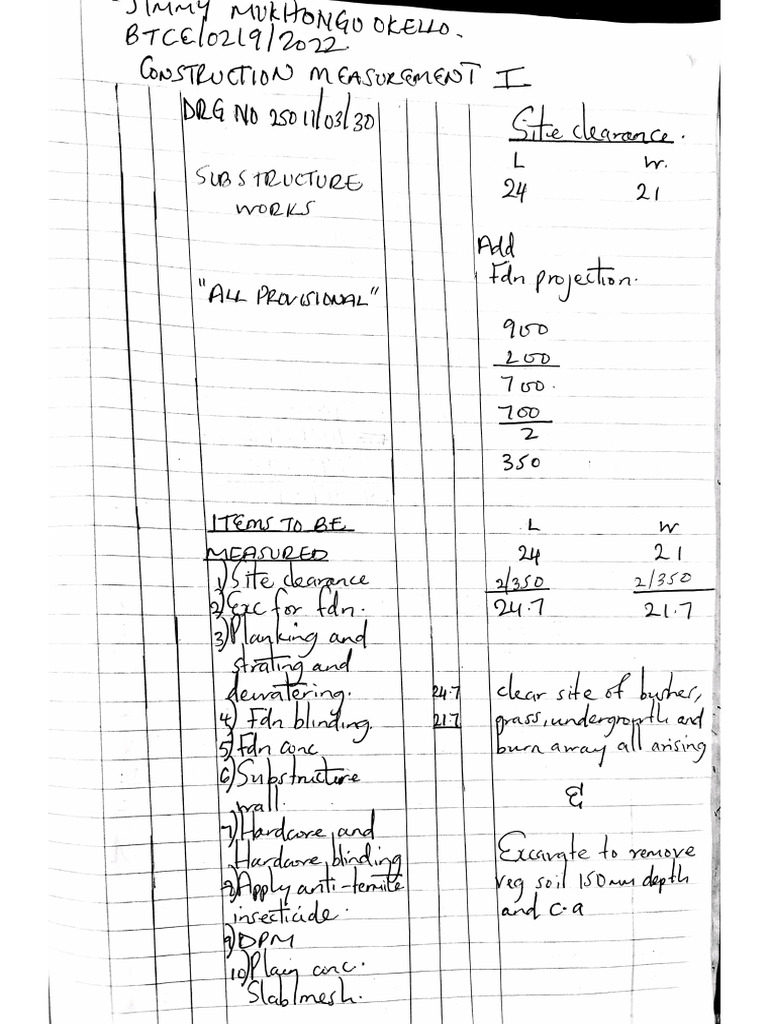 JIMMY MUKHONGO OKELLO.
BTCE/0219/2022.
CONSTRUCTION MEASUREMENT I
DRG NO 25011/03/30
SUBSTRUCTURE
WORKS
"ALL PROVISIONAL"
ITEMS TO BE
MEASURED
1) Site clearance
2) Exc for fdn.
3) Planking and
strating and
dewatering.
4) Fdn blinding.
5) Fdn conc
6) Substructure
wall.
7) Hardcore, and
Hardcore, blinding
8) Apply anti-termite
insecticide.
9) DPM
10) Plain conc.
Slab/mesh.
Site clearance.
L W.
24 21
Add
Fdn projection.
900
200
700.
700
2
350
L W
24 21
2/350 2/350
24.7 21.7
24.7
21.7
clear site of bushes,
grass, undergrowth and
burn away all arising
&
Excavate to remove
veg soil 150mm depth
and c.a